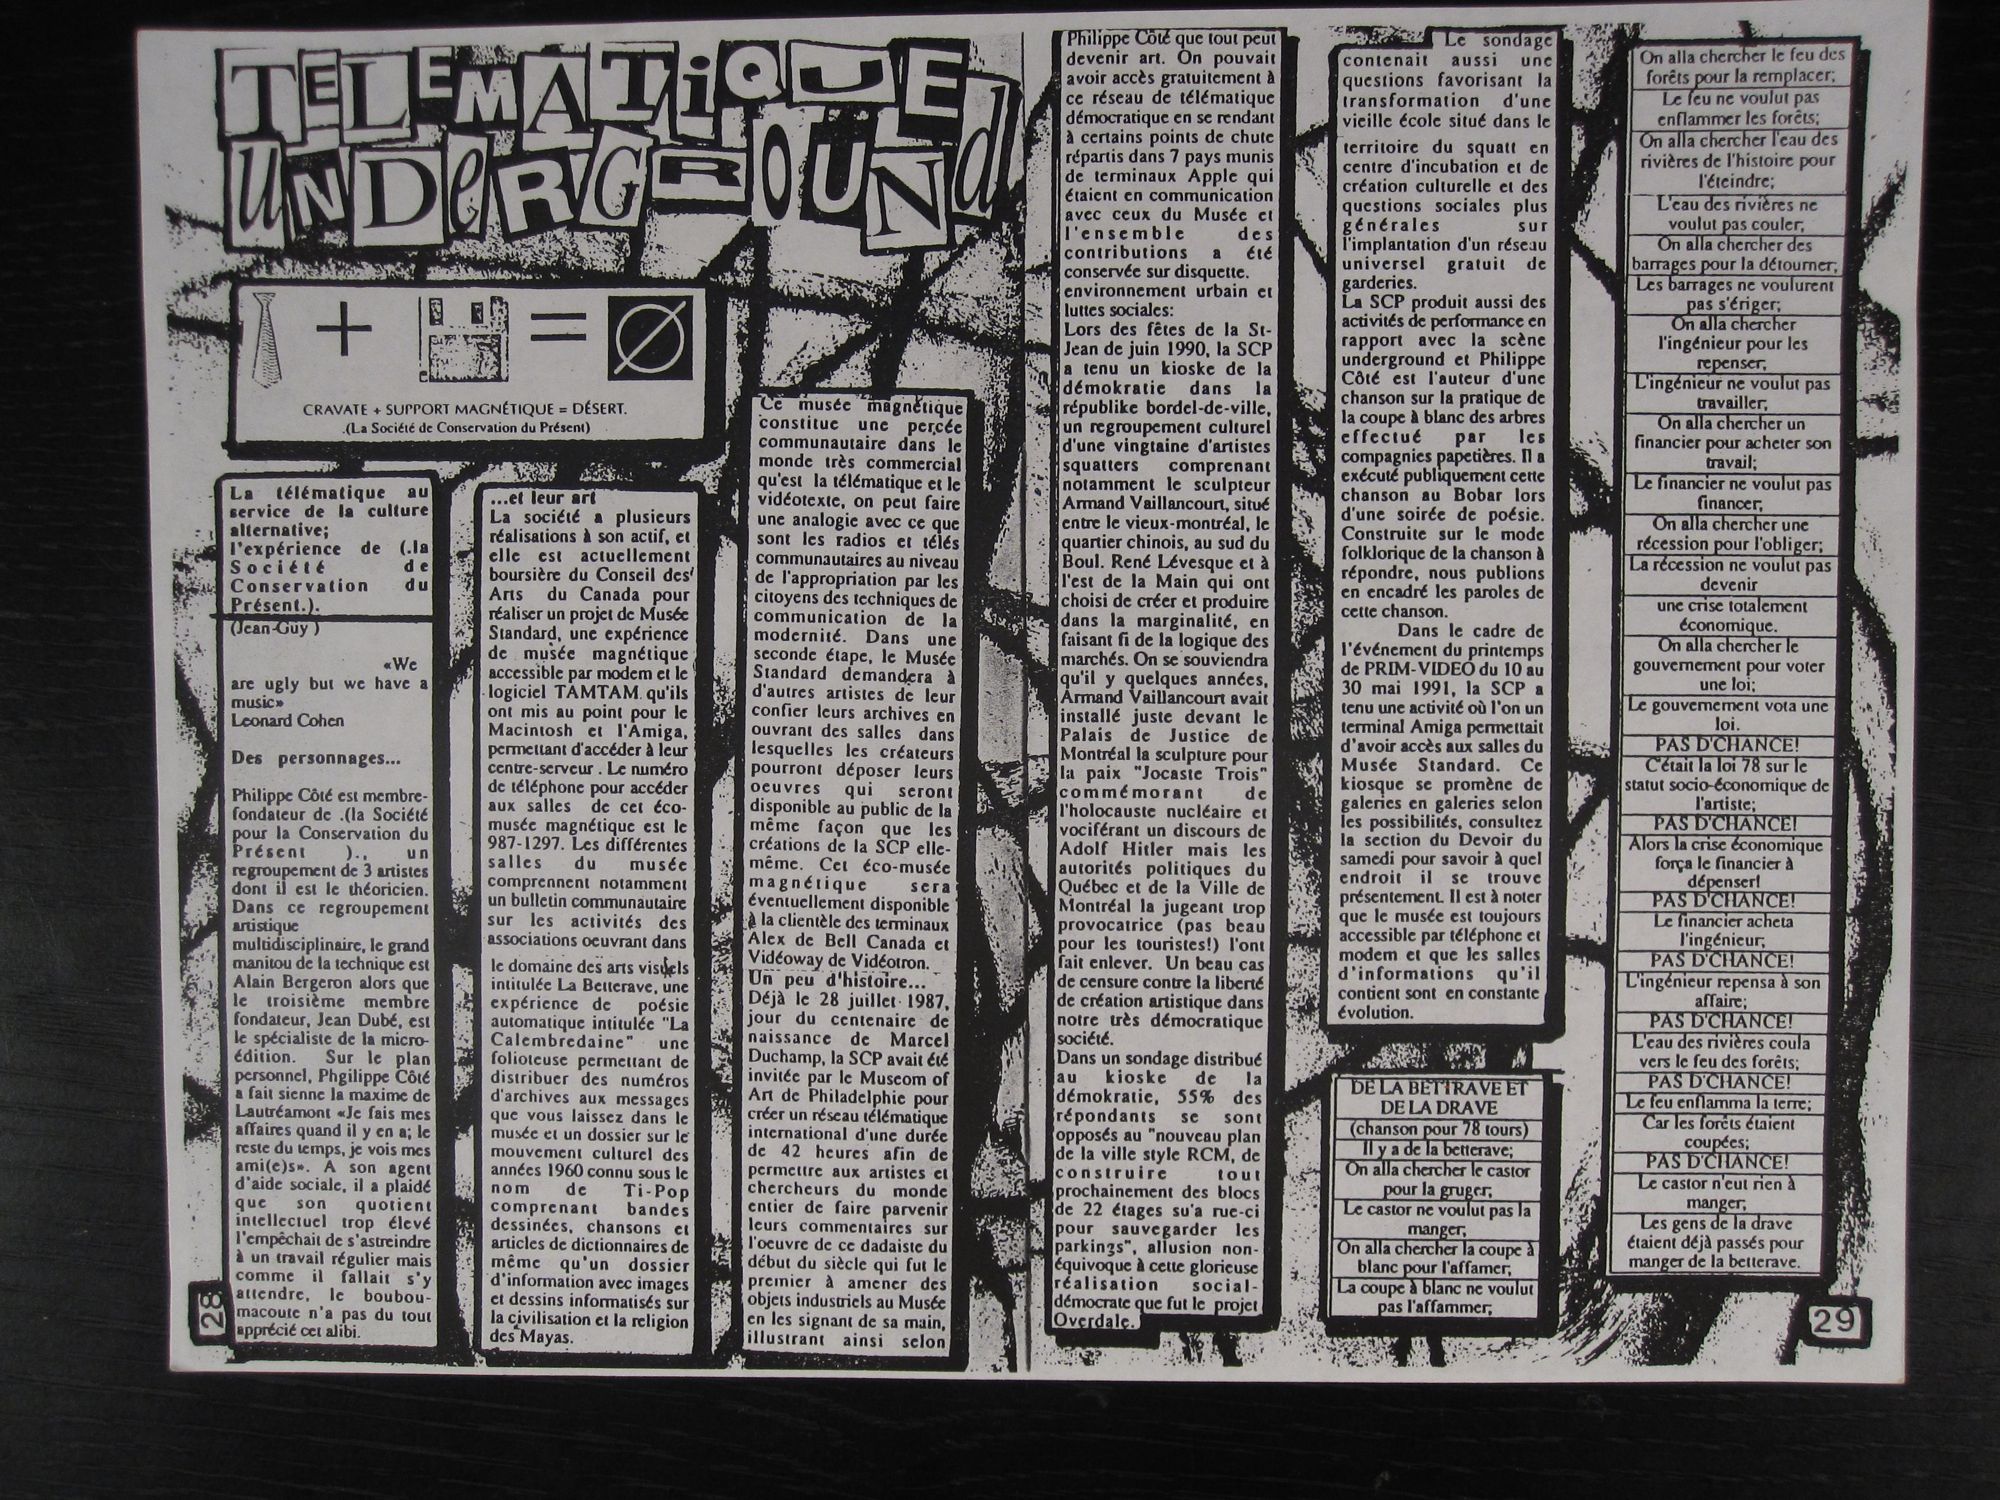 TELEMATIQUE
UNDERGROUNd
+ = Ø
CRAVATE + SUPPORT MAGNÉTIQUE = DÉSERT.
.(La Société de Conservation du Présent)
La télématique au
service de la culture
alternative;
l'expérience de (.la
Société de
Conservation du
Présent.).
(Jean-Guy )
«We
are ugly but we have a
music»
Leonard Cohen
Des personnages...
Philippe Côté est membre-
fondateur de .(la Société
pour la Conservation du
Présent )., un
regroupement de 3 artistes
dont il est le théoricien.
Dans ce regroupement
artistique
multidisciplinaire, le grand
manitou de la technique est
Alain Bergeron alors que
le troisième membre
fondateur, Jean Dubé, est
le spécialiste de la micro-
édition. Sur le plan
personnel, Phgilippe Côté
a fait sienne la maxime de
Lautréamont «Je fais mes
affaires quand il y en a; le
reste du temps, je vois mes
ami(e)s». A son agent
d'aide sociale, il a plaidé
que son quotient
intellectuel trop élevé
l'empêchait de s'astreindre
à un travail régulier mais
comme il fallait s'y
attendre, le boubou-
macoute n'a pas du tout
apprécié cet alibi.
28
...et leur art
La société a plusieurs
réalisations à son actif, et
elle est actuellement
boursière du Conseil des
Arts du Canada pour
réaliser un projet de Musée
Standard, une expérience
de musée magnétique
accessible par modem et le
logiciel TAMTAM qu'ils
ont mis au point pour le
Macintosh et l'Amiga,
permettant d'accéder à leur
centre-serveur . Le numéro
de téléphone pour accéder
aux salles de cet éco-
musée magnétique est le
987-1297. Les différentes
salles du musée
comprennent notamment
un bulletin communautaire
sur les activités des
associations oeuvrant dans
le domaine des arts visuels
intitulée La Betterave, une
expérience de poésie
automatique intitulée "La
Calembredaine" une
folioteuse permettant de
distribuer des numéros
d'archives aux messages
que vous laissez dans le
musée et un dossier sur le
mouvement culturel des
années 1960 connu sous le
nom de Ti-Pop
comprenant bandes
dessinées, chansons et
articles de dictionnaires de
même qu'un dossier
d'information avec images
et dessins informatisés sur
la civilisation et la religion
des Mayas.
Ce musée magnétique
constitue une percée
communautaire dans le
monde très commercial
qu'est la télématique et le
vidéotexte, on peut faire
une analogie avec ce que
sont les radios et télés
communautaires au niveau
de l'appropriation par les
citoyens des techniques de
communication de la
modernité. Dans une
seconde étape, le Musée
Standard demandera à
d'autres artistes de leur
confier leurs archives en
ouvrant des salles dans
lesquelles les créateurs
pourront déposer leurs
oeuvres qui seront
disponible au public de la
même façon que les
créations de la SCP elle-
même. Cet éco-musée
magnétique sera
éventuellement disponible
à la clientèle des terminaux
Alex de Bell Canada et
Vidéoway de Vidéotron.
Un peu d'histoire...
Déjà le 28 juillet 1987,
jour du centenaire de
naissance de Marcel
Duchamp, la SCP avait été
invitée par le Museom of
Art de Philadelphie pour
créer un réseau télématique
international d'une durée
de 42 heures afin de
permettre aux artistes et
chercheurs du monde
entier de faire parvenir
leurs commentaires sur
l'oeuvre de ce dadaiste du
début du siècle qui fut le
premier à amener des
objets industriels au Musée
en les signant de sa main,
illustrant ainsi selon
Philippe Côté que tout peut
devenir art. On pouvait
avoir accès gratuitement à
ce réseau de télématique
démocratique en se rendant
à certains points de chute
répartis dans 7 pays munis
de terminaux Apple qui
étaient en communication
avec ceux du Musée et
l'ensemble des
contributions a été
conservée sur disquette.
environnement urbain et
luttes sociales:
Lors des fêtes de la St-
Jean de juin 1990, la SCP
a tenu un kioske de la
démokratie dans la
républike bordel-de-ville,
un regroupement culturel
d'une vingtaine d'artistes
squatters comprenant
notamment le sculpteur
Armand Vaillancourt, situé
entre le vieux-montréal, le
quartier chinois, au sud du
Boul. René Lévesque et à
l'est de la Main qui ont
choisi de créer et produire
dans la marginalité, en
faisant fi de la logique des
marchés. On se souviendra
qu'il y quelques années,
Armand Vaillancourt avait
installé juste devant le
Palais de Justice de
Montréal la sculpture pour
la paix "Jocaste Trois"
commémorant de
l'holocauste nucléaire et
vociférant un discours de
Adolf Hitler mais les
autorités politiques du
Québec et de la Ville de
Montréal la jugeant trop
provocatrice (pas beau
pour les touristes!) l'ont
fait enlever. Un beau cas
de censure contre la liberté
de création artistique dans
notre très démocratique
société.
Dans un sondage distribué
au kioske de la
démokratie, 55% des
répondants se sont
opposés au "nouveau plan
de la ville style RCM, de
construire tout
prochainement des blocs
de 22 étages su'a rue-ci
pour sauvegarder les
parkings", allusion non-
équivoque à cette glorieuse
réalisation social-
démocrate que fut le projet
Overdale.
Le sondage
contenait aussi une
questions favorisant la
transformation d'une
vieille école situé dans le
territoire du squatt en
centre d'incubation et de
création culturelle et des
questions sociales plus
générales sur
l'implantation d'un réseau
universel gratuit de
garderies.
La SCP produit aussi des
activités de performance en
rapport avec la scène
underground et Philippe
Côté est l'auteur d'une
chanson sur la pratique de
la coupe à blanc des arbres
effectué par les
compagnies papetières. Il a
exécuté publiquement cette
chanson au Bobar lors
d'une soirée de poésie.
Construite sur le mode
folklorique de la chanson à
répondre, nous publions
en encadré les paroles de
cette chanson.
Dans le cadre de
l'événement du printemps
de PRIM-VIDEO du 10 au
30 mai 1991, la SCP a
tenu une activité où l'on un
terminal Amiga permettait
d'avoir accès aux salles du
Musée Standard. Ce
kiosque se promène de
galeries en galeries selon
les possibilités, consultez
la section du Devoir du
samedi pour savoir à quel
endroit il se trouve
présentement. Il est à noter
que le musée est toujours
accessible par téléphone et
modem et que les salles
d'informations qu'il
contient sont en constante
évolution.
DE LA BETTRAVE ET
DE LA DRAVE
(chanson pour 78 tours)
Il y a de la betterave;
On alla chercher le castor
pour la gruger;
Le castor ne voulut pas la
manger;
On alla chercher la coupe à
blanc pour l'affamer;
La coupe à blanc ne voulut
pas l'affammer;
On alla chercher le feu des
forêts pour la remplacer;
Le feu ne voulut pas
enflammer les forêts;
On alla chercher l'eau des
rivières de l'histoire pour
l'éteindre;
L'eau des rivières ne
voulut pas couler;
On alla chercher des
barrages pour la détourner;
Les barrages ne voulurent
pas s'ériger;
On alla chercher
l'ingénieur pour les
repenser;
L'ingénieur ne voulut pas
travailler;
On alla chercher un
financier pour acheter son
travail;
Le financier ne voulut pas
financer;
On alla chercher une
récession pour l'obliger;
La récession ne voulut pas
devenir
une crise totalement
économique.
On alla chercher le
gouvernement pour voter
une loi;
Le gouvernement vota une
loi.
PAS D'CHANCE!
C'était la loi 78 sur le
statut socio-économique de
l'artiste;
PAS D'CHANCE!
Alors la crise économique
força le financier à
dépenser!
PAS D'CHANCE!
Le financier acheta
l'ingénieur;
PAS D'CHANCE!
L'ingénieur repensa à son
affaire;
PAS D'CHANCE!
L'eau des rivières coula
vers le feu des forêts;
PAS D'CHANCE!
Le feu enflamma la terre;
Car les forêts étaient
coupées;
PAS D'CHANCE!
Le castor n'eut rien à
manger;
Les gens de la drave
étaient déjà passés pour
manger de la betterave.
29